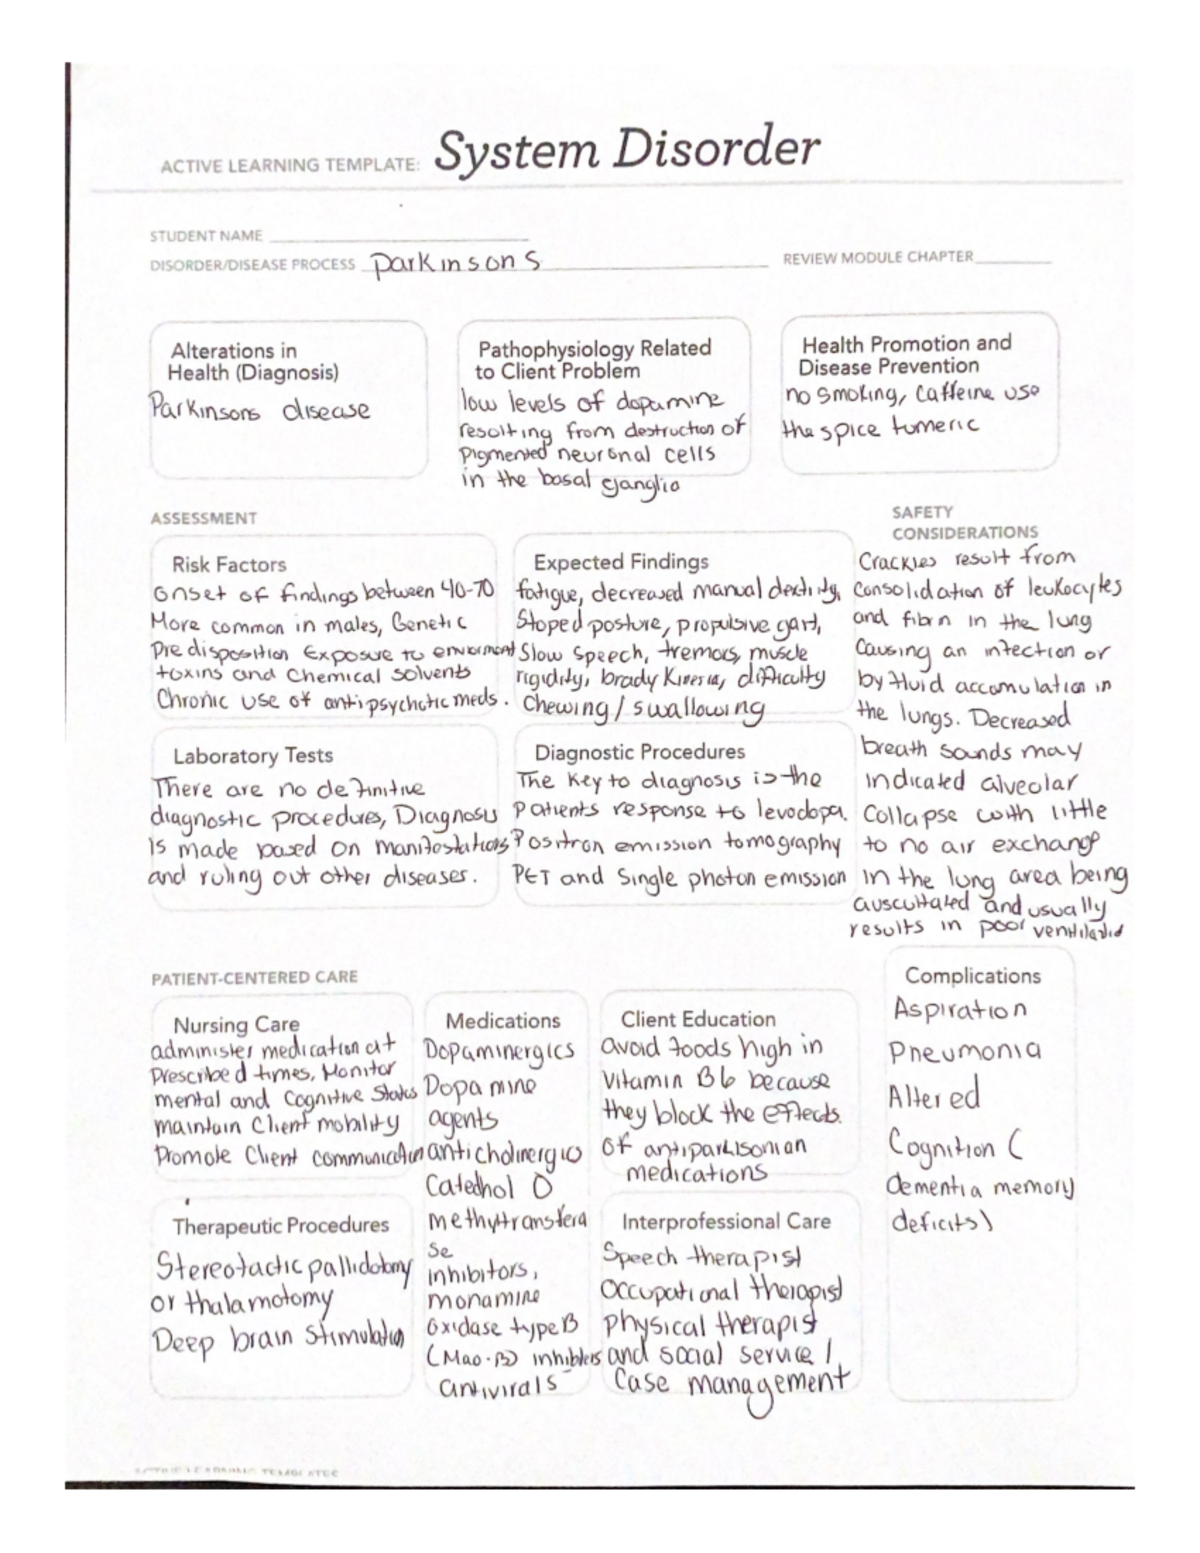 ACTIVE LEARNING TEMPLATE: System Disorder
STUDENT NAME
DISORDER/DISEASE PROCESS Parkinsons
REVIEW MODULE CHAPTER
Alterations in
Health (Diagnosis)
Parkinsons disease
Pathophysiology Related
to Client Problem
low levels of dopamine
resulting from destruction of
pigmented neuronal cells
in the basal ganglia
Health Promotion and
Disease Prevention
no smoking, caffeine use
the spice tumeric
ASSESSMENT
SAFETY
CONSIDERATIONS
Risk Factors
onset of findings between 40-70
More common in males, Genetic
Predisposition Exposure to enviorment
toxins and chemical solvents
Chronic use of antipsychotic meds.
Expected Findings
fatigue, decreased manual dexterity,
Stoped posture, propulsive gart,
Slow speech, tremors, muscle
rigidity, brady Kinesia, difficulty
Chewing / swallowing
Crackles result from
Consolidation of leukocytes
and fibrin in the lung
Causing an infection or
by fluid accumulation in
the lungs. Decreased
breath sounds may
indicated alveolar
Collapse with little
to no air exchange
in the lung area being
auscultated and usually
results in poor
Laboratory Tests
There are no definitive
diagnostic procedures, Diagnosis
is made based on manifestations
and ruling out other diseases.
Diagnostic Procedures
The key to diagnosis is the
patients response to levodopa.
Positron emission tomography
PET and Single photon emission
PATIENT-CENTERED CARE
Nursing Care
administer medication at
Prescribed times, Monitor
mental and Cognitive Status
maintain Client mobility
Promote Client communication
Medications
Dopaminergics
Dopamine
agents
anticholinergics
Catechol O
methyltransfera
se
inhibitors,
monamine
oxidase type B
(Mao-B) inhibiters
antivirals
Client Education
avoid foods high in
Vitamin B6 because
they block the effects.
of antiparkisonian
medications
Complications
Aspiration
Pneumonia
Altered
Cognition (
dementia memory
deficits)
Therapeutic Procedures
Stereotactic pallidotomy
or thalamotomy
Deep brain Stimulation
Interprofessional Care
Speech therapist
Occupational therapist
Physical therapist
and social service /
Case management
ACTIVE LEARNING TEMPLATES